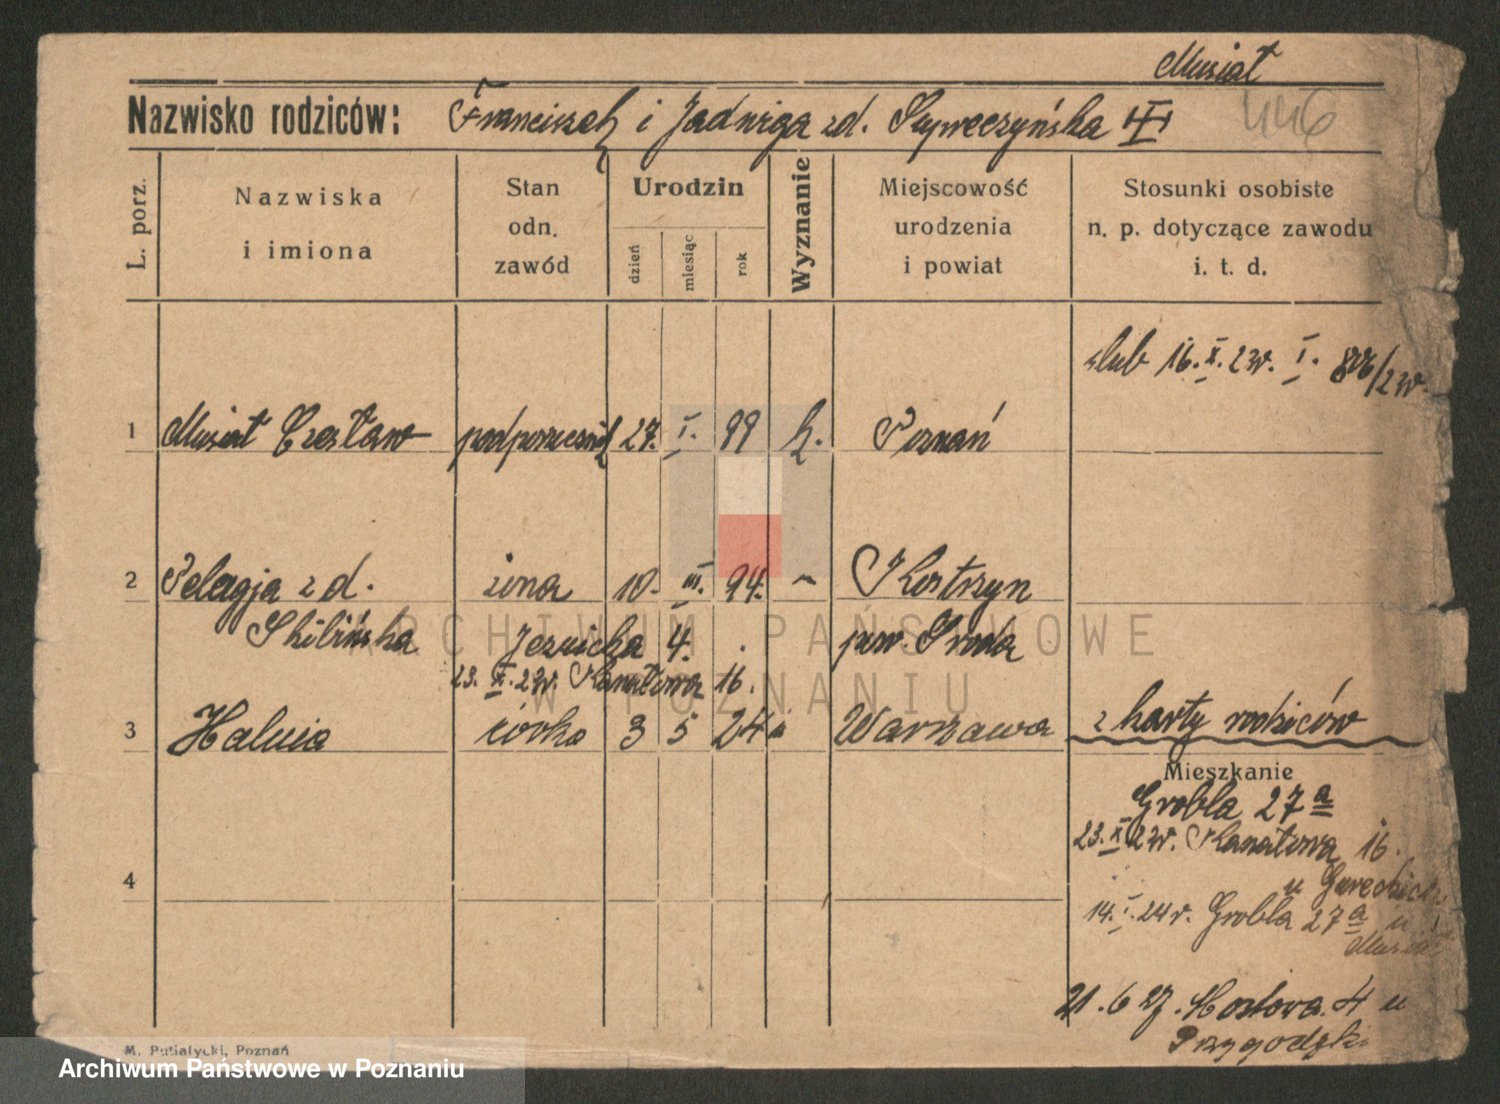 Musiał
Nazwisko rodziców: Franciszek i Jadwiga zd.
446
L. porz.
Nazwiska i imiona
Stan odn. zawód
Urodzin
dzień
miesiąc
rok
Wyznanie
Miejscowość urodzenia i powiat
Stosunki osobiste n. p. dotyczące zawodu i. t. d.
ślub 16. X. 23r. I.
1 Musiał Czesław podporucznik 27. I. 99 k. Poznań
2 Pelagja z d. żona 10. III. 94. Kostrzyn
Skibińska Jezuicka 4. pow. Środa
23. X. 23r. Kanałowa 16.
3 Halina córka 3 5 24 k Warszawa z karty rodziców
Mieszkanie
Grobla 27a
23. X 23r. Kanałowa 16.
u
4
14. I. 24r. Grobla 27a u
Musiał
21. 6 27. Mostowa 4 u
Przygodzki
M. Putiatycki, Poznań
ARCHIWUM PAŃSTWOWE
W POZNANIU
Archiwum Państwowe w Poznaniu